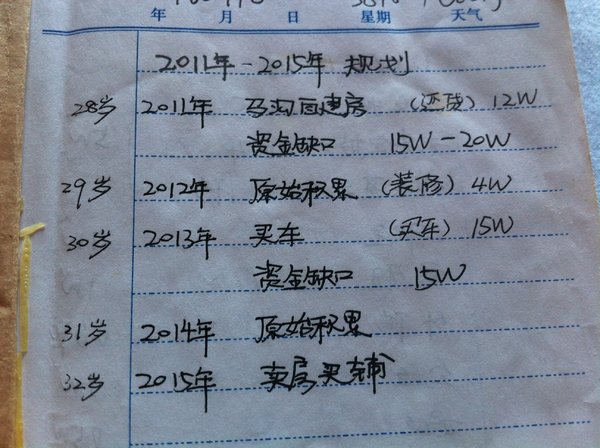 年 月 日 星期 天气
2011年-2015年 规划
28岁 2011年 马沟回建房 (还贷) 12W
资金缺口 15W-20W
29岁 2012年 原始积累 (装修) 4W
30岁 2013年 买车 (买车) 15W
资金缺口 15W
31岁 2014年 原始积累
32岁 2015年 卖房买辅